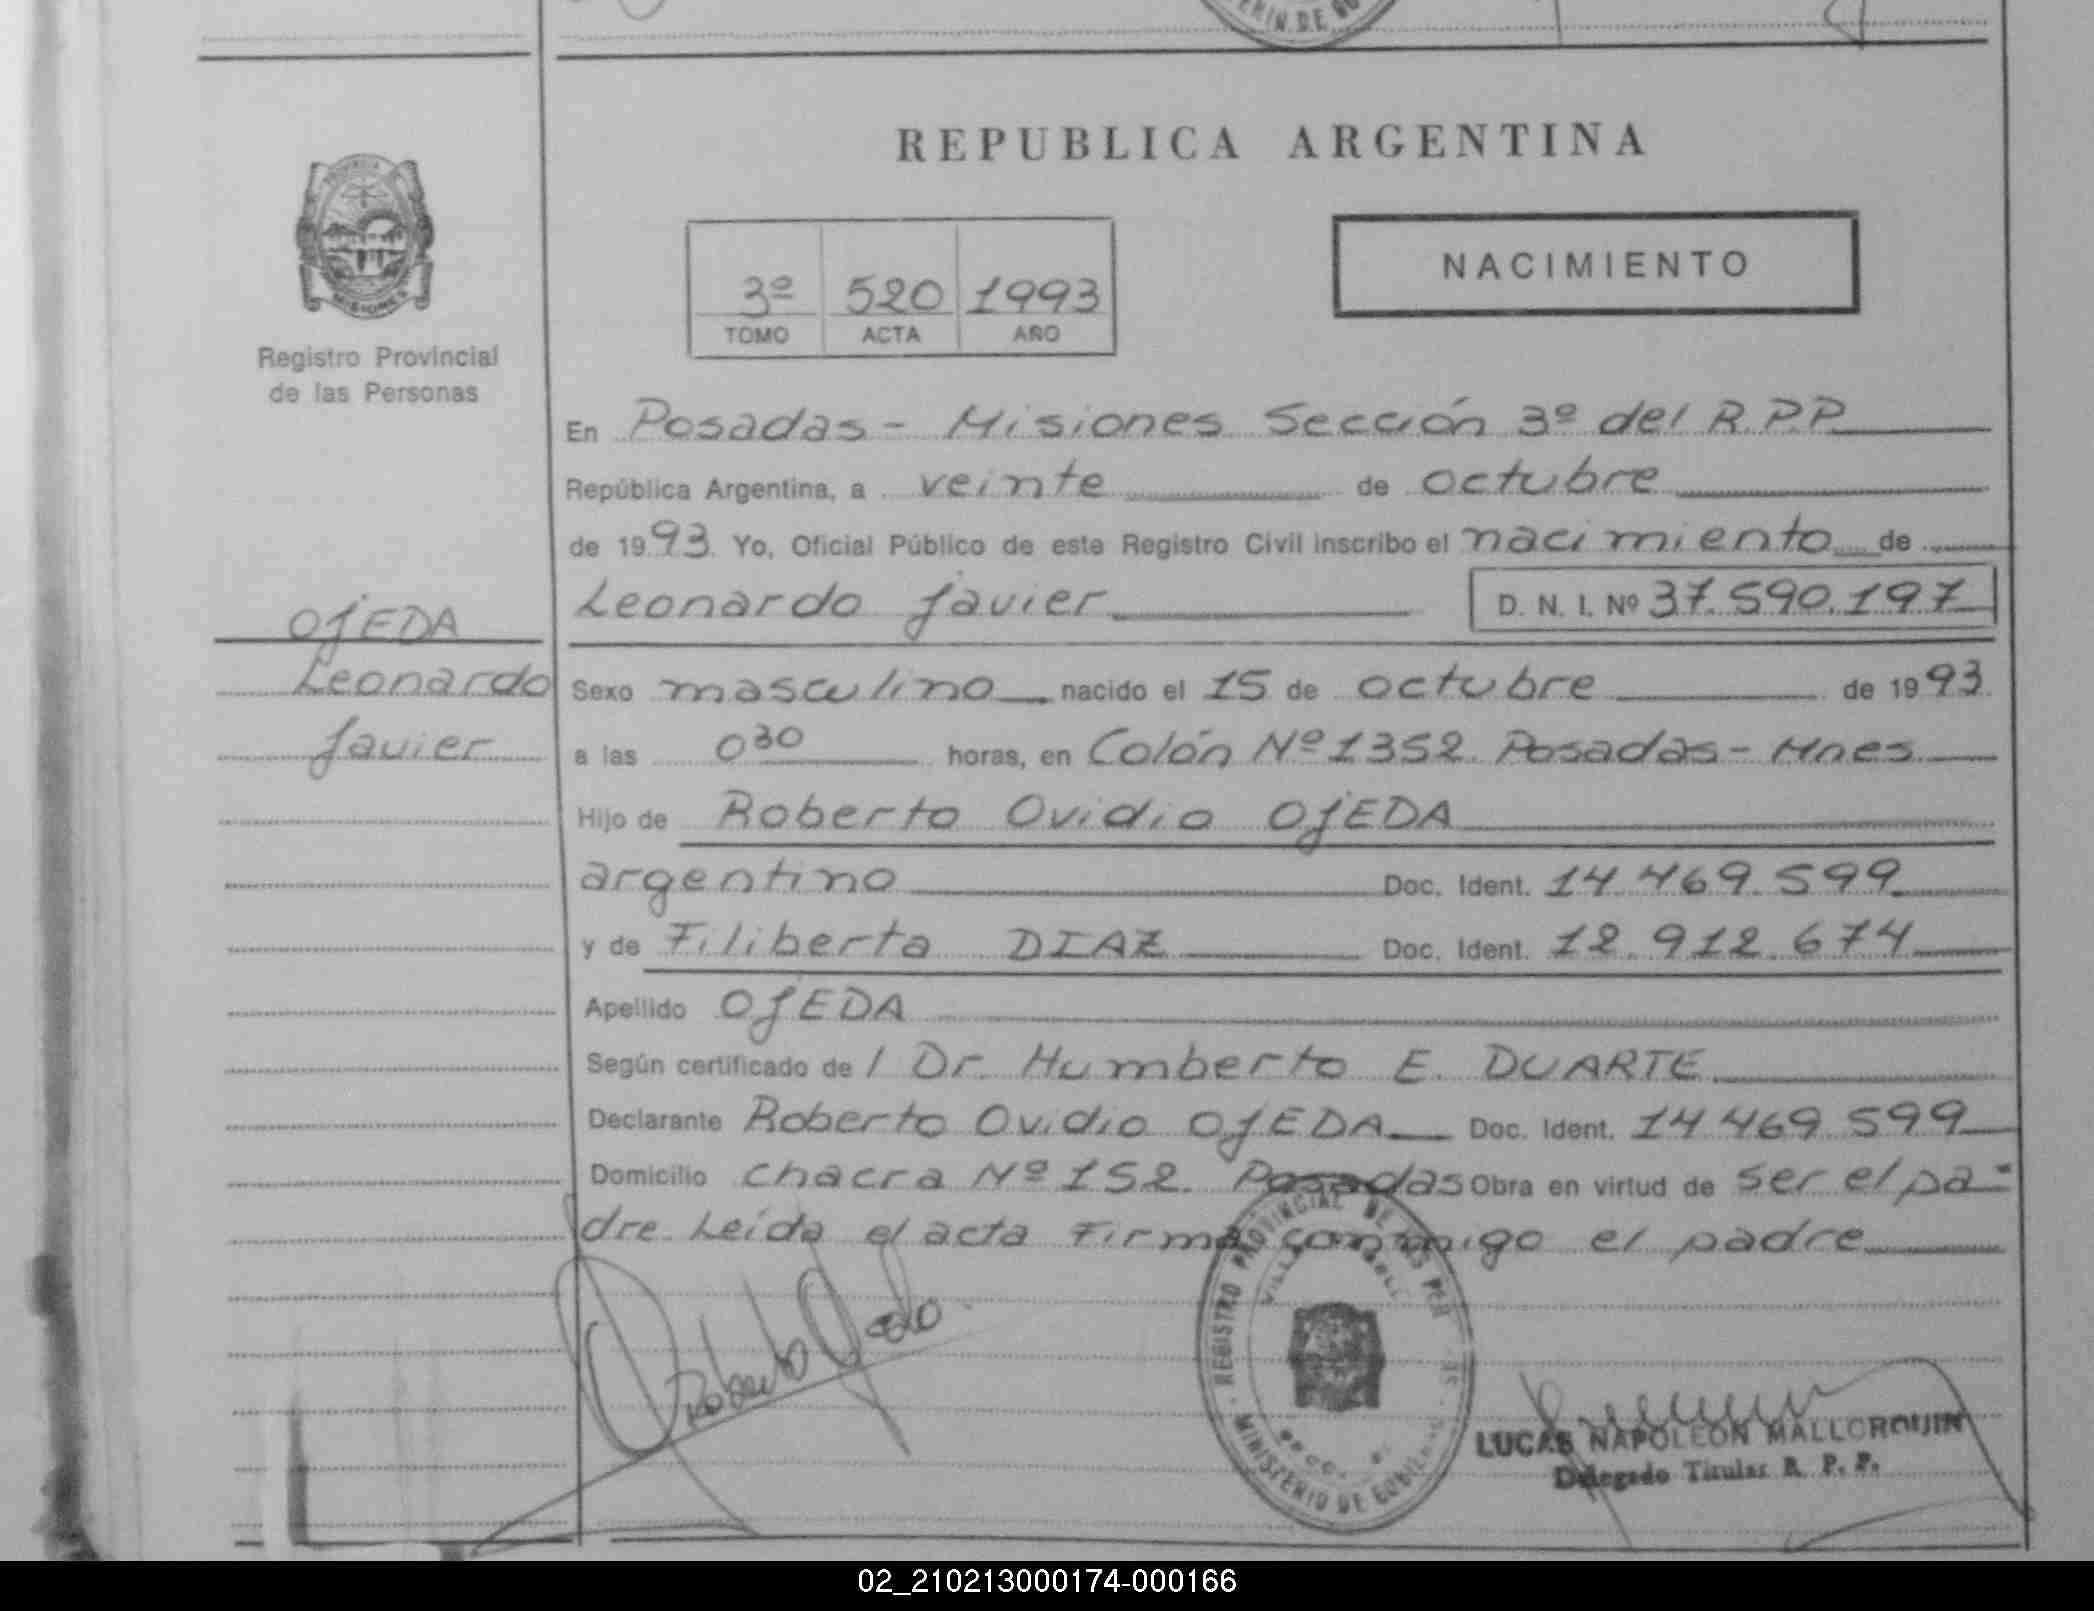 REPUBLICA ARGENTINA
NACIMIENTO
3º 520 1993
TOMO ACTA AÑO
Registro Provincial
de las Personas
En Posadas - Misiones Sección 3º del R.P.P.
República Argentina, a veinte de octubre
de 1993. Yo, Oficial Público de este Registro Civil inscribo el nacimiento de
Leonardo Javier D. N. I. Nº 37.590.197
OJEDA
Leonardo
Javier
Sexo masculino nacido el 15 de octubre de 1993
a las 0 30 horas, en Colón Nº 1352. Posadas - Mnes
Hijo de Roberto Ovidio OJEDA
argentino Doc. Ident. 14 469 599
y de Filiberta DIAZ Doc. Ident. 12.912.674
Apellido OJEDA
Según certificado de l Dr. Humberto E. DUARTE
Declarante Roberto Ovidio OJEDA Doc. Ident. 14 469 599
Domicilio chacra Nº 152. Posadas Obra en virtud de ser el pa-
dre. Leída el acta firma conmigo el padre
REGISTRO PROVINCIAL DE LAS PER
MINISTERIO DE GOBIERNO
LUCAS NAPOLEON MALLORQUIN
Delegado Titular R. P. P.
02_210213000174-000166